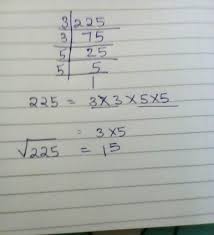 3 225
3 75
5 25
5 5
1
225 = 3×3×5×5
= 3×5
√225 = 15